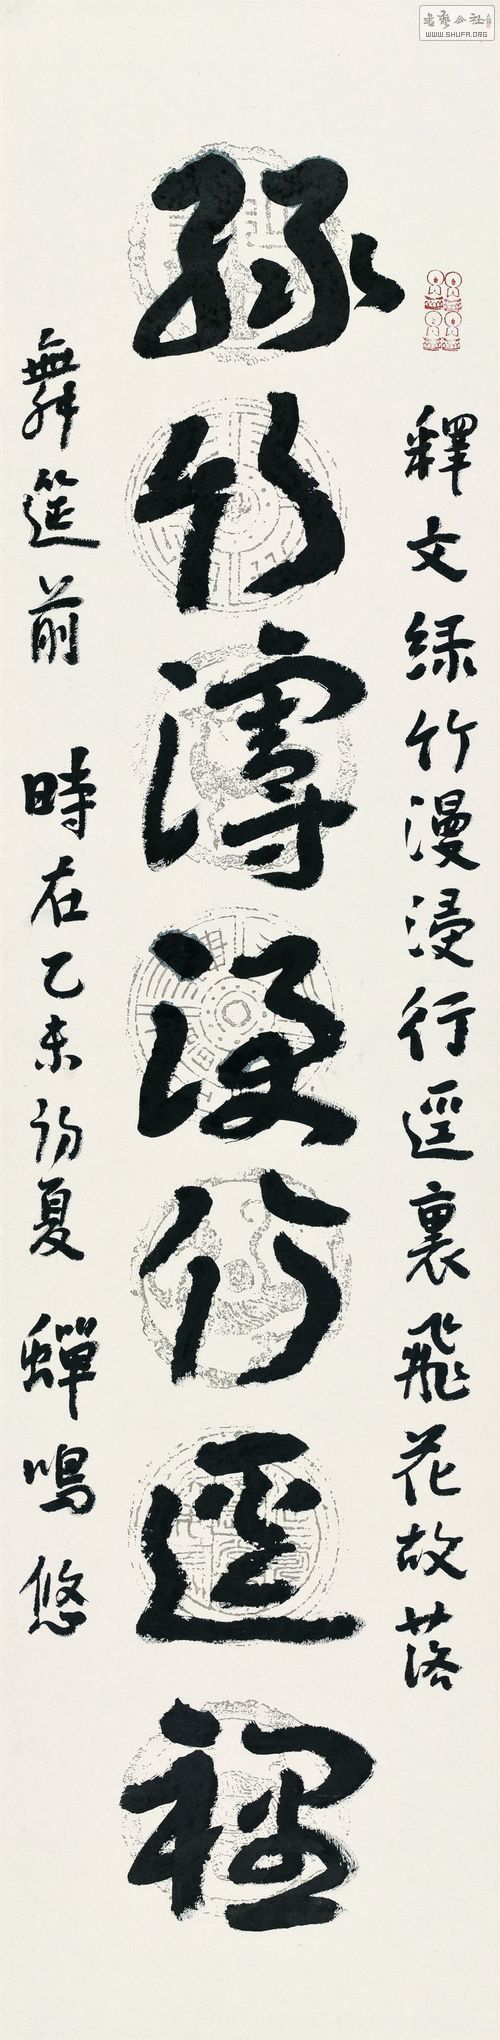 書藝公社
WWW.SHUFA.ORG
緑竹漫浸行逕裡
釋文緑竹漫浸行逕裏飛花故落
舞筵前 時在乙未初夏 蟬鳴悠